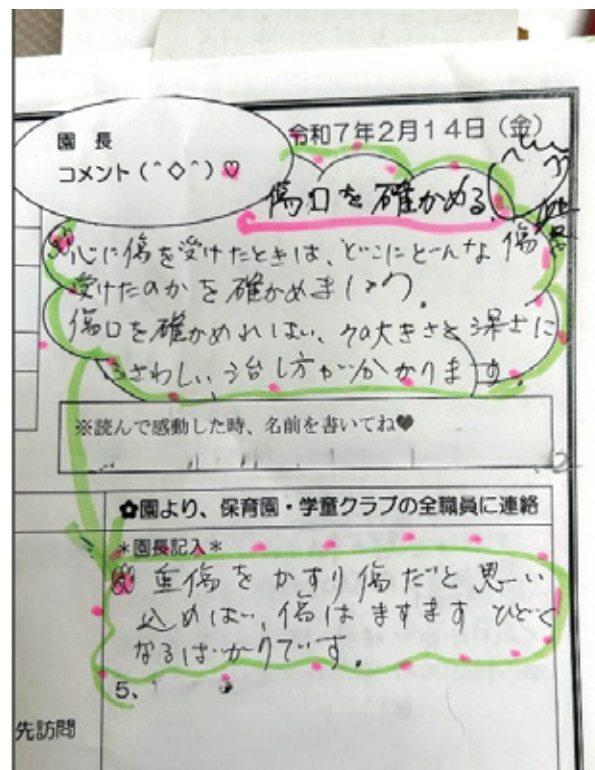 令和7年2月14日（金）
園 長
コメント（^◇^）♡
傷口を確かめる
心に傷を受けたときは、どこにどんな傷を
受けたのかを確かめましょう。
傷口を確かめれば、その大きさと深さに
ふさわしい治し方が分かります。
※読んで感動した時、名前を書いてね♥
✿園より、保育園・学童クラブの全職員に連絡
＊園長記入＊
重傷をかすり傷だと思い
込めば、傷はますますひどく
なるばかりです。
5、
先訪問